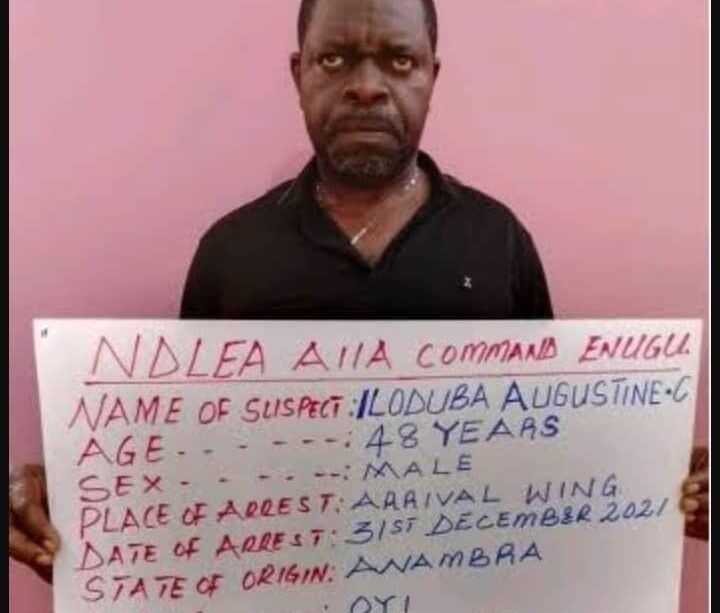 NDLEA AIIA COMMAND ENUGU.
NAME OF SUSPECT: ILODUBA AUGUSTINE.C
AGE - - - - - -: 48 YEARS
SEX - - - - - --: MALE
PLACE OF ARREST: ARRIVAL WING
DATE OF ARREST: 31ST DECEMBER 2021
STATE OF ORIGIN: ANAMBRA
: OYI
Z